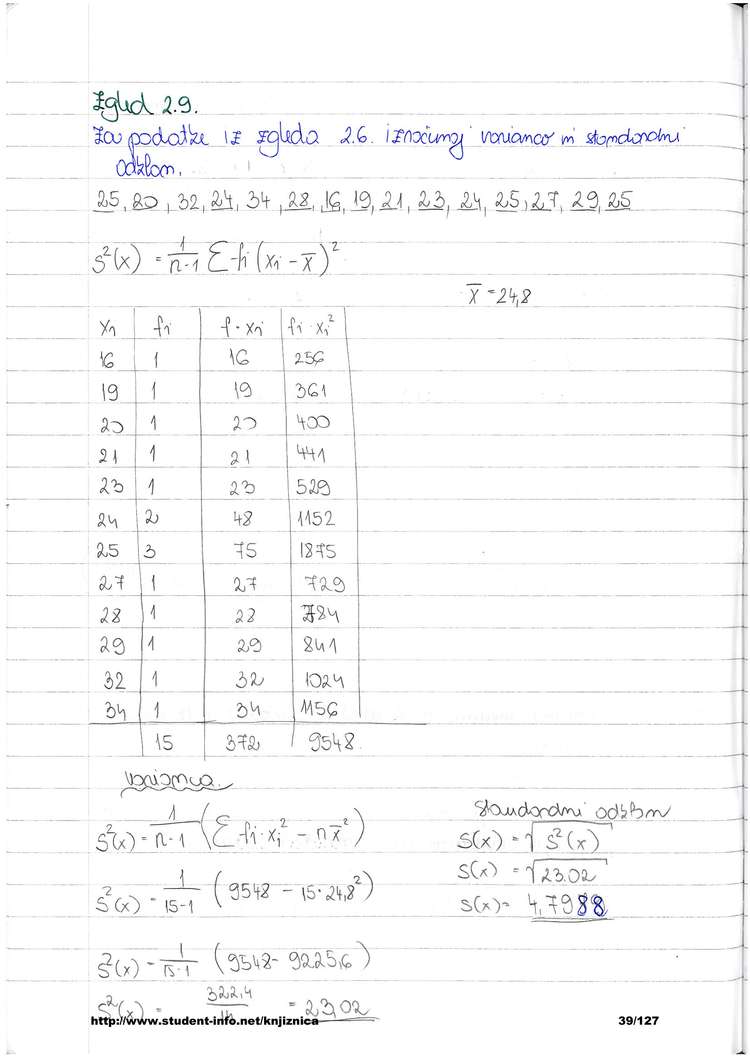 Zgled 2.9.
Za podatke iz zgleda 2.6. izračunaj varianco in standardni
odklon.
25, 20, 32, 24, 34, 28, 16, 19, 21, 23, 24, 25, 27, 29, 25
s²(x) = 1/(n-1) Σ fi (xi - x̄)²
x̄ = 24,8
xi fi f·xi fi·xi²
16 1 16 256
19 1 19 361
20 1 20 400
21 1 21 441
23 1 23 529
24 2 48 1152
25 3 75 1875
27 1 27 729
28 1 28 784
29 1 29 841
32 1 32 1024
34 1 34 1156
15 372 9548
varianca
s²(x) = 1/(n-1) (Σ fi·xi² - nx̄²)
s²(x) = 1/(15-1) (9548 - 15·24,8²)
s²(x) = 1/(15-1) (9548 - 9225,6)
s²(x) = 322,4/14 = 23,02
standardni odklon
s(x) = √s²(x)
s(x) = √23.02
s(x) = 4,7988
http://www.student-info.net/knjiznica
39/127